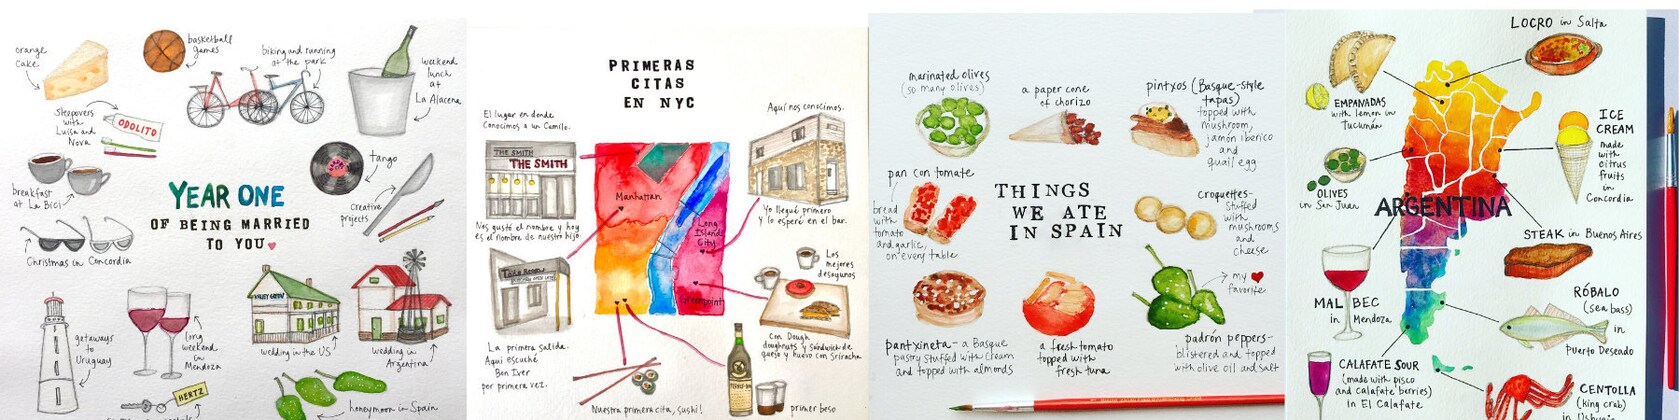 orange
cake
basketball
games
biking and running
at the park
weekend
lunch
at
La Alacena
sleepovers
with
Luisa and
Nova
ODOLITO
breakfast
at La Bici
tango
Creative
projects
YEAR ONE
OF BEING MARRIED
TO YOU
Christmas in Concordia
getaways
to
Uruguay
long
weekend
in
Mendoza
VALLEY GREEN
wedding in the US
wedding in
Argentina
HERTZ
honeymoon in Spain
PRIMERAS
CITAS
EN NYC
El lugar en donde
conocimos a un Camilo.
THE SMITH
THE SMITH
Nos gustó el nombre y hoy
es el nombre de nuestro hijo.
Aquí nos conocimos.
Yo llegué primero
y lo esperé en el bar.
Manhattan
Long
Island
City
Greenpoint
Los
mejores
desayunos
Con Dough
doughnuts y sándwich de
queso y huevo con Sriracha
La primera salida.
Aquí escuché
Bon Iver
por primera vez.
Nuestra primera cita, sushi!
primer beso
marinated olives
(so many olives)
a paper cone
of chorizo
pintxos (Basque-style
tapas)
topped with
mushroom,
jamón iberico
and
quail egg
pan con tomate
bread
with
tomato
and garlic,
on every table
THINGS
WE ATE
IN SPAIN
croquettes-
stuffed
with
mushrooms
and
cheese
my
favorite
pantxineta - a Basque
pastry stuffed with cream
and topped with almonds
a fresh tomato
topped with
fresh tuna
padrón peppers-
blistered and topped
with olive oil and salt
LOCRO in Salta
EMPANADAS
with lemon in
Tucumán
ICE
CREAM
made
with
citrus
fruits
in
Concordia
OLIVES
in San Juan
ARGENTINA
STEAK in Buenos Aires
MALBEC
in Mendoza
RÓBALO
(sea bass)
in
Puerto Deseado
CALAFATE SOUR
(made with pisco
and calafate berries)
in El Calafate
CENTOLLA
(king crab)